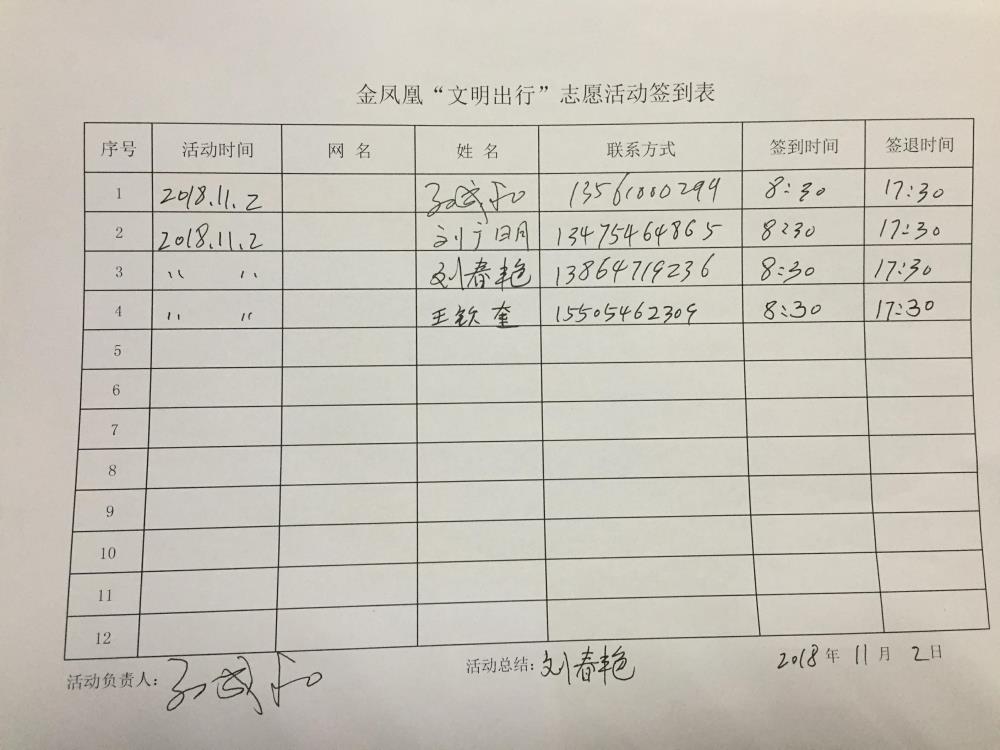 金凤凰“文明出行”志愿活动签到表
序号 活动时间 网 名 姓 名 联系方式 签到时间 签退时间
1 2018.11.2 13561000294 8:30 17:30
2 2018.11.2 刘广明 13475464865 8:30 17:30
3 〃 〃 刘春艳 13864719236 8:30 17:30
4 〃 〃 王钦奎 15505462309 8:30 17:30
5
6
7
8
9
10
11
12
活动负责人: 活动总结: 刘春艳 2018 年 11 月 2 日